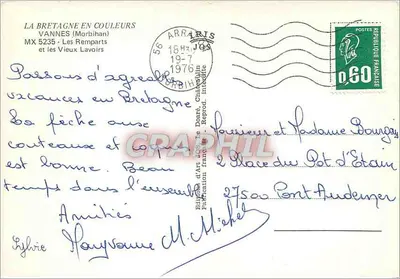 LA BRETAGNE EN COULEURS
VANNES (Morbihan)
MX 5235 - Les Remparts
et les Vieux Lavoirs
56 ARRA
18H
19-7
1976
MORBIHAN
JOS
POSTES
0,60
REPUBLIQUE FRANÇAISE
Passons d'agréables
vacances en Bretagne
La pêche aux
couteaux et coques
est bonne. Beau
temps dans l'ensemble
Amitiés
Sylvie Maryvonne M. Michel
Monsieur et Madame Bourgeois
2 Place du Pot d'Etain
27500 Pont-Audemer
CARTEGRAPHIL